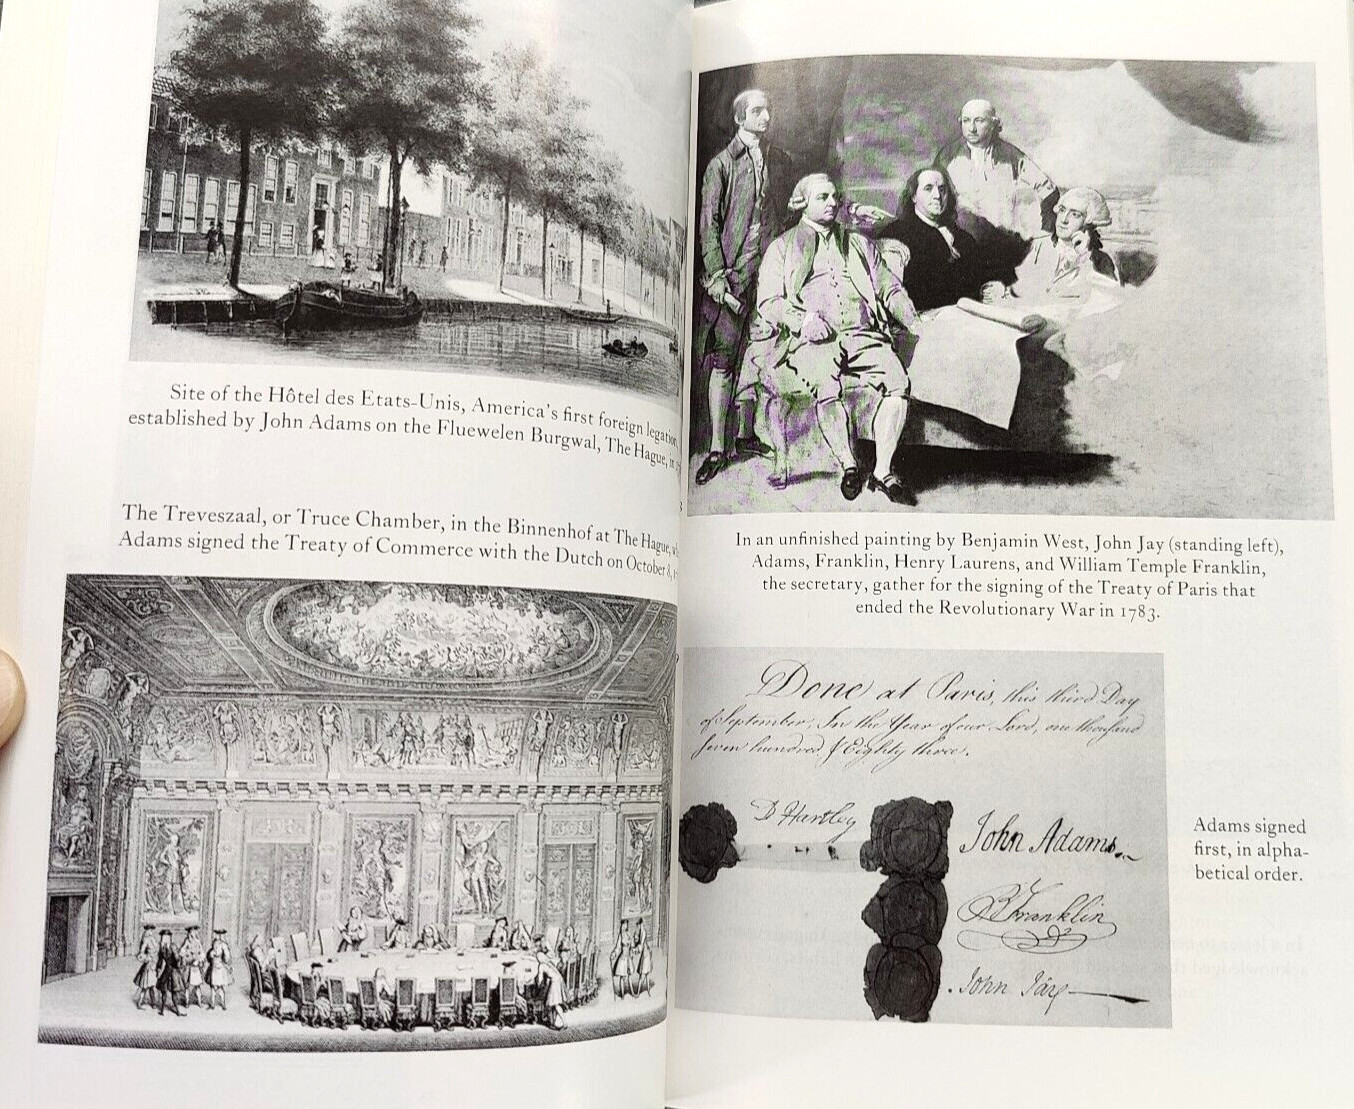 Site of the Hôtel des Etats-Unis, America's first foreign legation,
established by John Adams on the Fluewelen Burgwal, The Hague, in
The Treveszaal, or Truce Chamber, in the Binnenhof at The Hague,
Adams signed the Treaty of Commerce with the Dutch on October 8,
In an unfinished painting by Benjamin West, John Jay (standing left),
Adams, Franklin, Henry Laurens, and William Temple Franklin,
the secretary, gather for the signing of the Treaty of Paris that
ended the Revolutionary War in 1783.
Done at Paris, this third Day
of September, In the Year of our Lord, one thousand
seven hundred & Eighty three.
D Hartley
John Adams
B Franklin
John Jay
Adams signed
first, in alpha-
betical order.